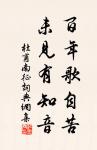 百年歌自苦
未見有知音
杜甫南征詞典網集